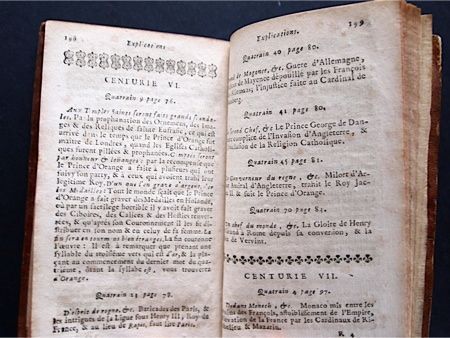 198
Explications
CENTURIE VI.
Quatrain 9 page 76.
Aux Temples Saints seront faits grands scandales,
Par la prophanation des Ornemens, des Images
& des Reliques de sainte Eufraise, ce qui est
arrivé dans le temps que le Prince d'Orange fut
maître de Londres, quand les Eglises Catholiques
furent pillées & prophanées. C merites seront
par honneurs & loüanges: par la recompense que
le Prince d'Orange a faite à plusieurs qui ont
suivy son party, & à ceux qui avoient trahi leur
legitime Roy. D'un que l'on grave d'argent, d'or
les Medailles: Tout le monde sçait que le Prince
d'Orange a fait graver des Medailles en Holande,
où par un sacrilege horrible il y avoit fait graver
des Ciboires, des Calices & des Hosties renversées,
& qu'aprés son Couronnement il les fit distribuer
en son nom & en celuy de sa femme. La
fin sera en tourm ns bien étranges. La fin couronne
l'œuvre: Il est à remarquer que prenant une
syllabe du troisiéme vers qui est d'or, & la plaçant
au commencement du dernier mot du quatriéme,
étant la syllabe est, vous trouverez
d'Orange.
Quatrain 23 page 78.
D'esprit de regne, &c. Baricades des Paris, &
les intrigues de la Ligue sous Henry III, Roy de
France, & au lieu de Rapis, faut lire Paris.
Explications.
199
Quatrain 40 page 80.
de Magonce, &c. Guere d'Allemagne,
de Mayence dépouillé par les François
l'injustice faite au Cardinal de
Quatrain 41 page 80.
second Chef, &c. Le Prince George de Dannemarc
complice de l'Invasion d'Angleterre, &
de la Religion Catholique.
Quatrain 45 page 81.
Gouverneur du regne, &c. Milort d'Ar
Amiral d'Angleterre, trahit le Roy Jacques
II. & fait le Prince d'Orange.
Quatrain 70 page 84.
chef du monde, &c. La Gloire de Henry
à Rome depuis sa conversion, & la
de Vervint.
CENTURIE VII.
Quatrain 4 page 97.
Dedans Monech, &c. Monaco mis entre les
des François, affoiblissement de l'Empire,
en France par les Cardinaux de Richelieu
& Mazarin.
R 4